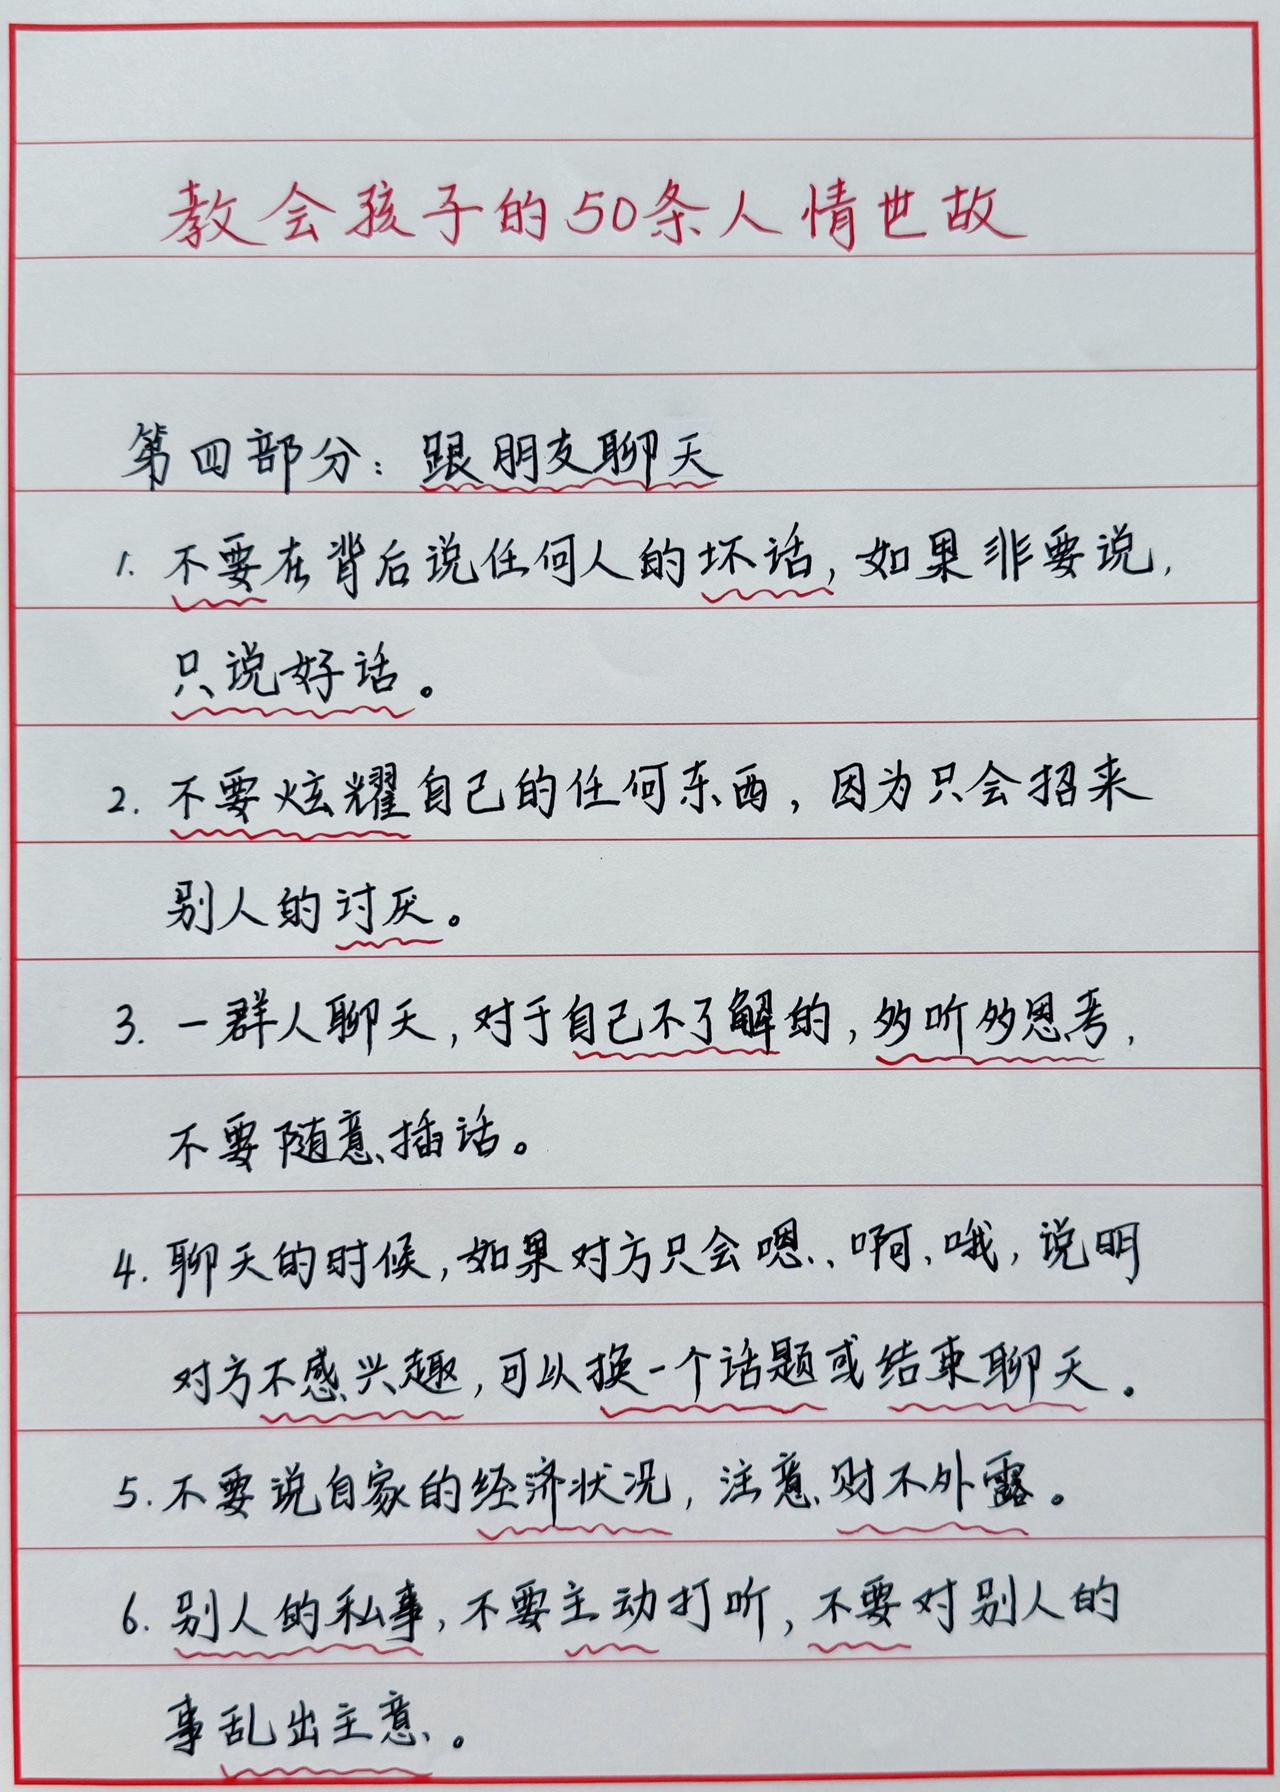 教会孩子的50条人情世故
第四部分：跟朋友聊天
1. 不要在背后说任何人的坏话，如果非要说，
只说好话。
2. 不要炫耀自己的任何东西，因为只会招来
别人的讨厌。
3. 一群人聊天，对于自己不了解的，多听多思考，
不要随意插话。
4. 聊天的时候，如果对方只会嗯、啊、哦，说明
对方不感兴趣，可以换一个话题或结束聊天。
5. 不要说自家的经济状况，注意财不外露。
6. 别人的私事，不要主动打听，不要对别人的
事乱出主意。